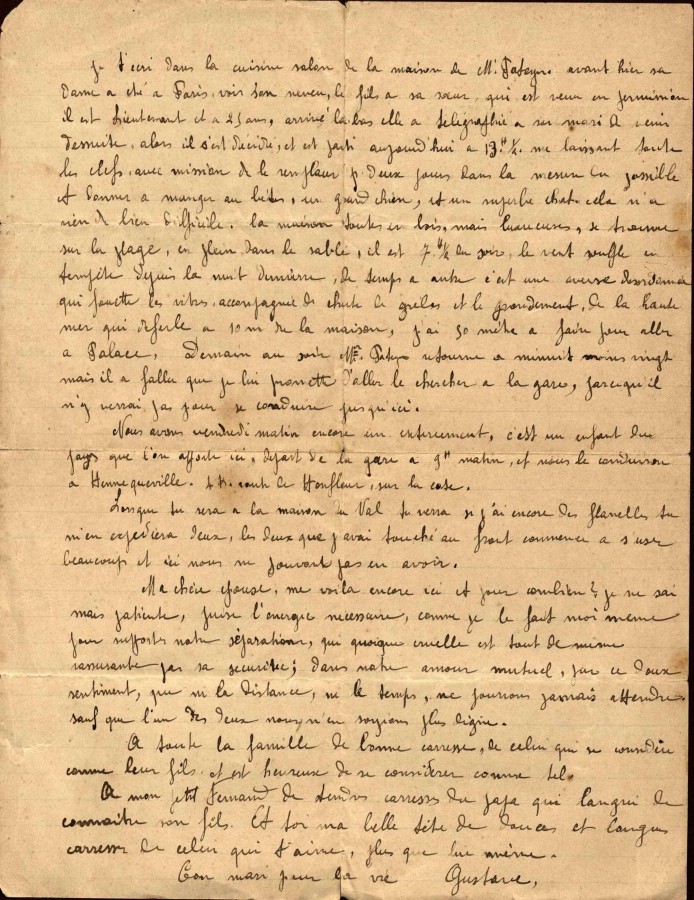 je t'ecri dans la cuisine salon de la maison de Mr avant hier sa
dame a eté a Paris, voir son neveu, le fils a sa sœur, qui est venu en permission
il est lieutenant et a 25 ans, arrivé la bas elle a telegraphié a son mari de venir
dessuite, alors il s'est décidé, et est parti aujourd'hui a 13h ½ me laissant toute
les clefs, avec mission de le remplacer p. deux jours dans la mesure du possible
et donner a manger au bêtes, un grand chien, et un superbe chat. cela n'a
rien de bien difficile. la maison toutes en bois, mais luxueuses, se trouve
sur la plage, en plein dans le sable, il est 7 h ½ du soir, le vent souffle en
tempête depuis la nuit dernierre, de temps a autre c'est une averse desordonnée
qui fouette les vitres, accompagnée de chute de greles et le grondement, de la haute
mer qui deferle a 10m de la maison, j'ai 50 mètre a faire pour aller
a Palace. Demain au soir Mr retourne a minuit moins vingt
mais il a fallu que je lui promette d'aller le chercher a la gare, parcequ'il
n'y verrai pas pour se conduire jusqu'ici.
Nous avons vendredi matin encore un enterrement, c'est un enfant du
pays que l'on apporte ici, depart de la gare a 9h matin, et nous le conduison
a Hennequeville. 4 K. route de Honfleur, sur la cote.
Lorsque tu sera a la maison du Val tu verra si j'ai encore des flanelles tu
m'en expediera deux, les deux que j'avai touché au front commence a s'user
beaucoups et ici nous ne pouvont pas en avoir.
Ma chère epouse, me voila encore ici et pour combien? je ne sai
mais patiente, puise l'energie necessaire, comme je le fait moi meme
pour supporter notre séparation, qui quoique cruelle est tout de même
rassurante par sa securitée; dans notre amour mutuel, par ce doux
sentiment, que ni la distance, ni le temps, ne pourrons jamais attendre
sauf que l'un des deux nous n'en soyions plus digne.
A toute la famille de bonne carresse, de celui qui se considère
comme leur fils. et est heureuse de se considerer comme tel.
A mon petit Fernand de tendres carresses du papa qui langui de
connaitre son fils. Et toi ma belle tite de douces et longues
carresses de celui qui t'aime, plus que lui même.
Ton mari pour la vie Gustave,